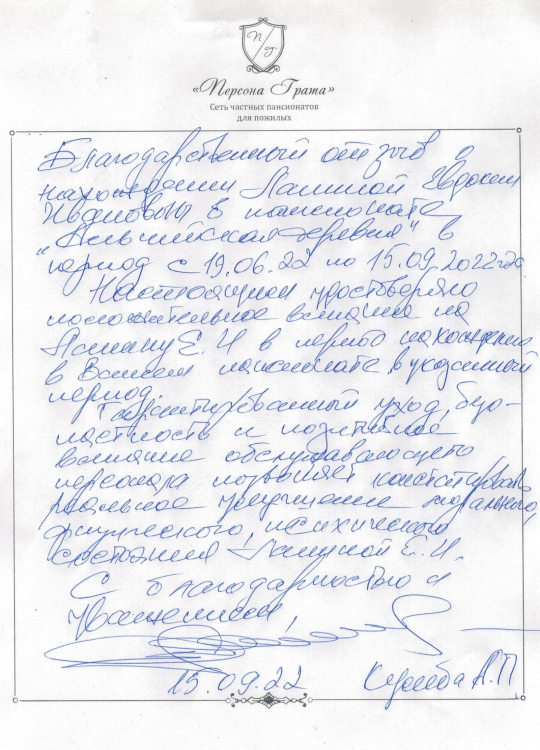 П/Г
«Персона Грата»
Сеть частных пансионатов
для пожилых
Благодарственный отзыв о
нахождении Ламиной Евдокии
Ивановны в пансионате
"Ильинская деревня" в
период с 19.06.22 по 15.09.2022 года
Настоящим удостоверяю
положительное влияние на
Е.И в период нахождения
в Вашем пансионате в указанный
период.
Гарантированный уход, 
и позитивное
влияние обслуживающего
персонала позволяет констатировать
реальное улучшение морального,
физического, психического
состояния Ламиной Е.И.
С благодарностью и
уважением,
15.09.22 А.П